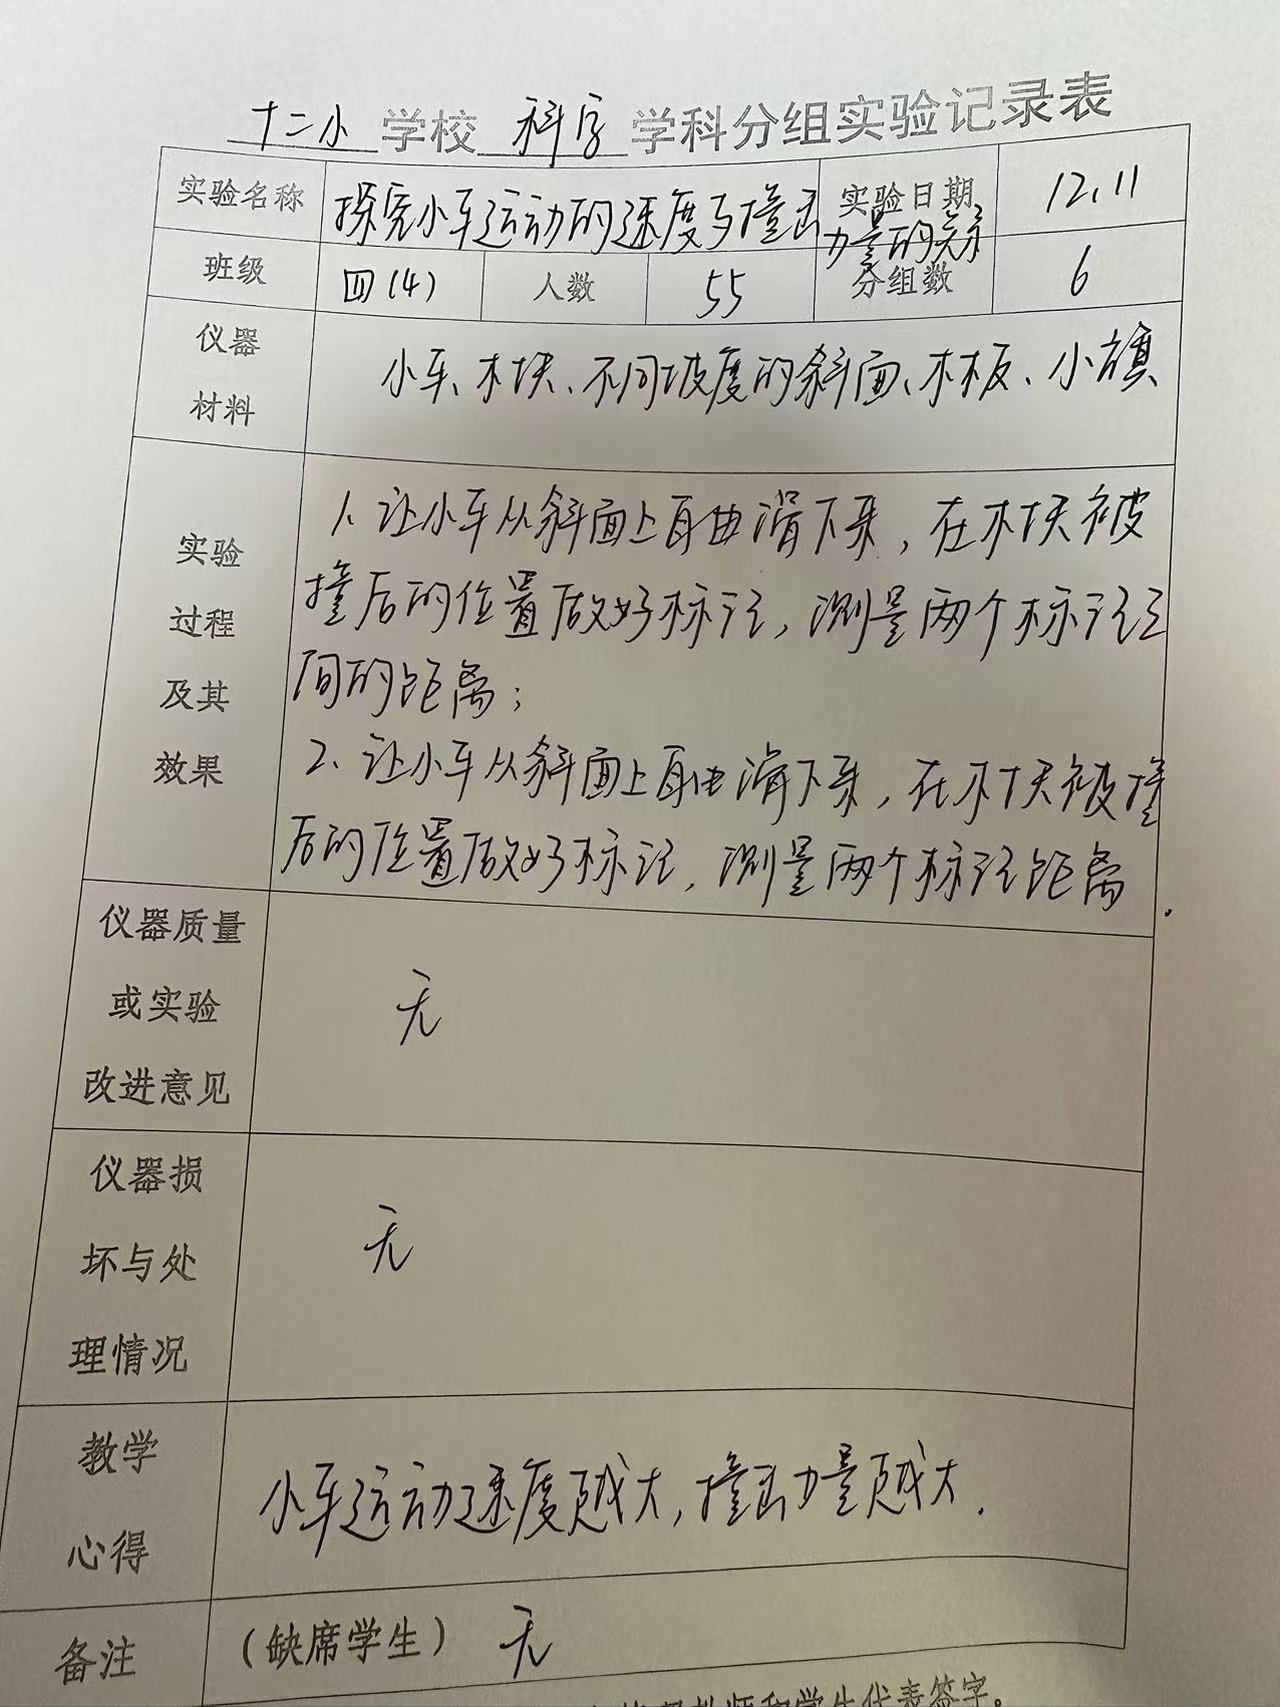 十二小 学校 科学 学科分组实验记录表
实验名称 探究小车运动的速度与撞击力量的关系 实验日期 12.11
班级 四(4) 人数 55 分组数 6
仪器
材料
小车、木块、不同坡度的斜面、木板、小旗
实验
过程
及其
效果
1、让小车从斜面上自由滑下来，在木块被
撞后的位置做好标记，测量两个标记之
间的距离；
2、让小车从斜面上自由滑下来，在木块被撞
后的位置做好标记，测量两个标记距离.
仪器质量
或实验
改进意见
无
仪器损
坏与处
理情况
无
教学
心得
小车运动速度越大，撞击力量越大.
备注 (缺席学生) 无
教师和学生代表签字。